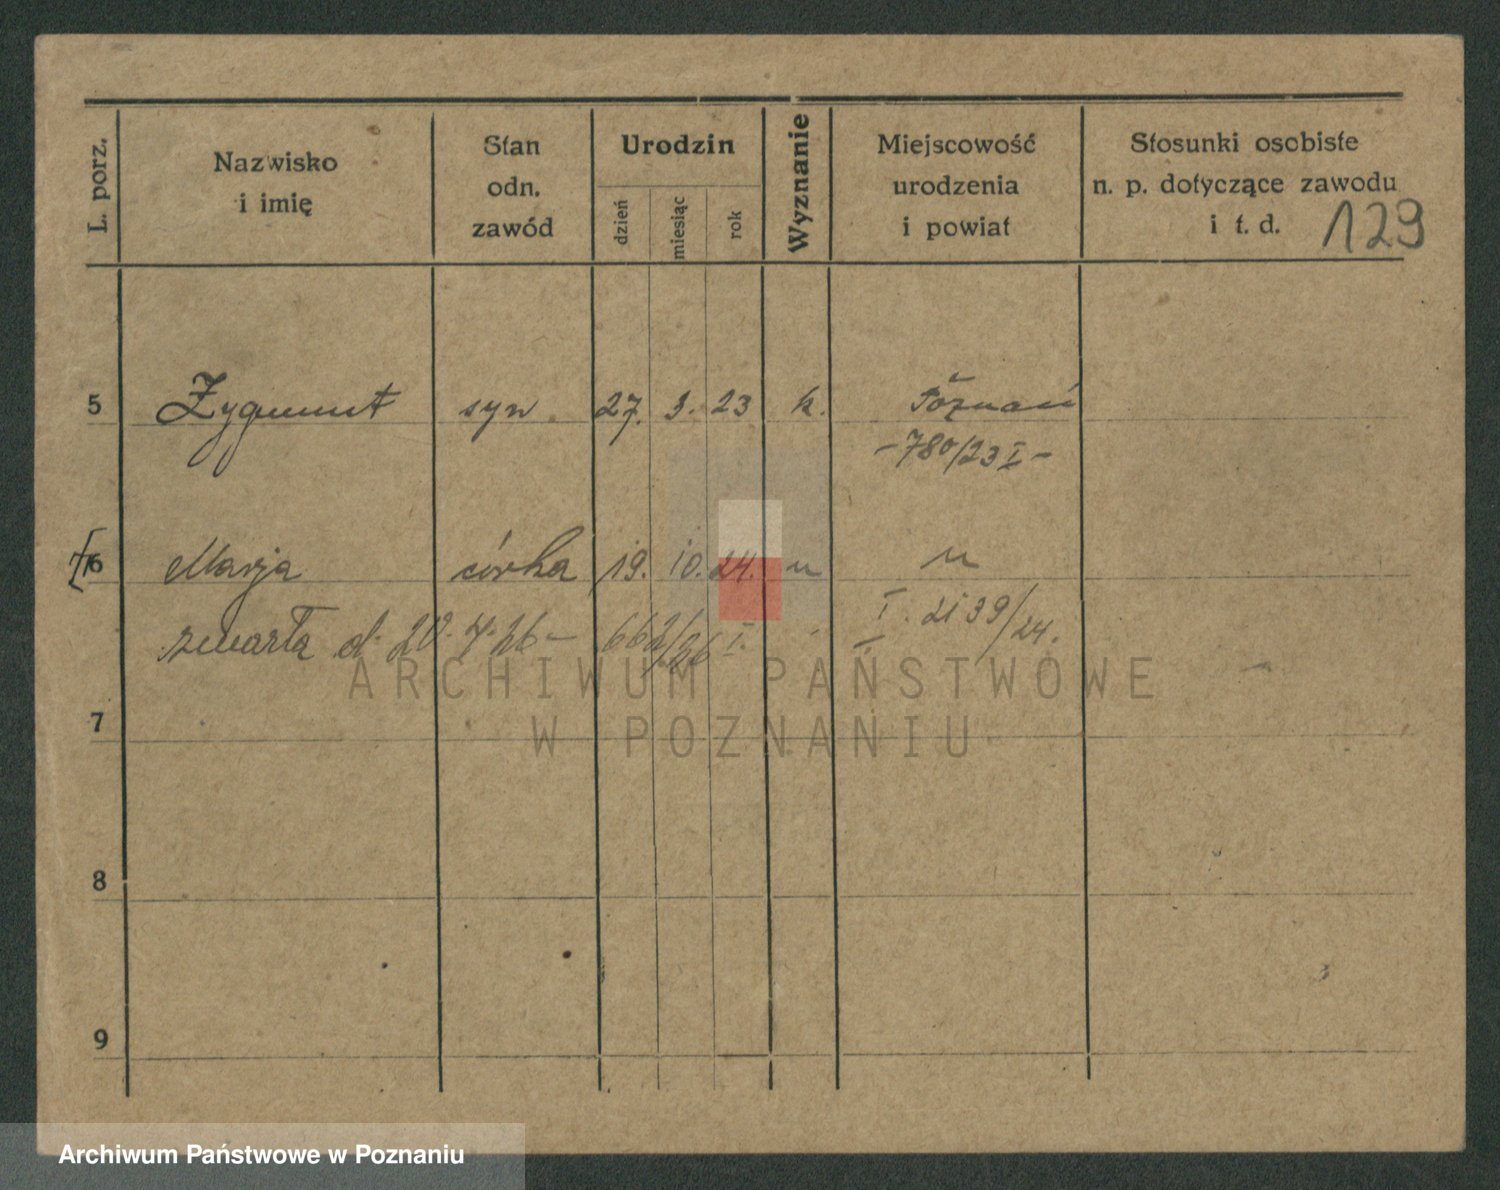 L. porz.
Nazwisko
i imię
Stan
odn.
zawód
Urodzin
dzień
miesiąc
rok
Wyznanie
Miejscowość
urodzenia
i powiat
Stosunki osobiste
n. p. dotyczące zawodu
i t. d.
129
5 Zygmunt syn 27. 3. 23 k. Poznań
-780/23 I-
6 Marja córka 19. 10. 24. " "
zmarła d. 20. 4. 26 - 662/26 I. I. 2139/24.
ARCHIWUM PAŃSTWOWE
W POZNANIU
7
8
9
Archiwum Państwowe w Poznaniu